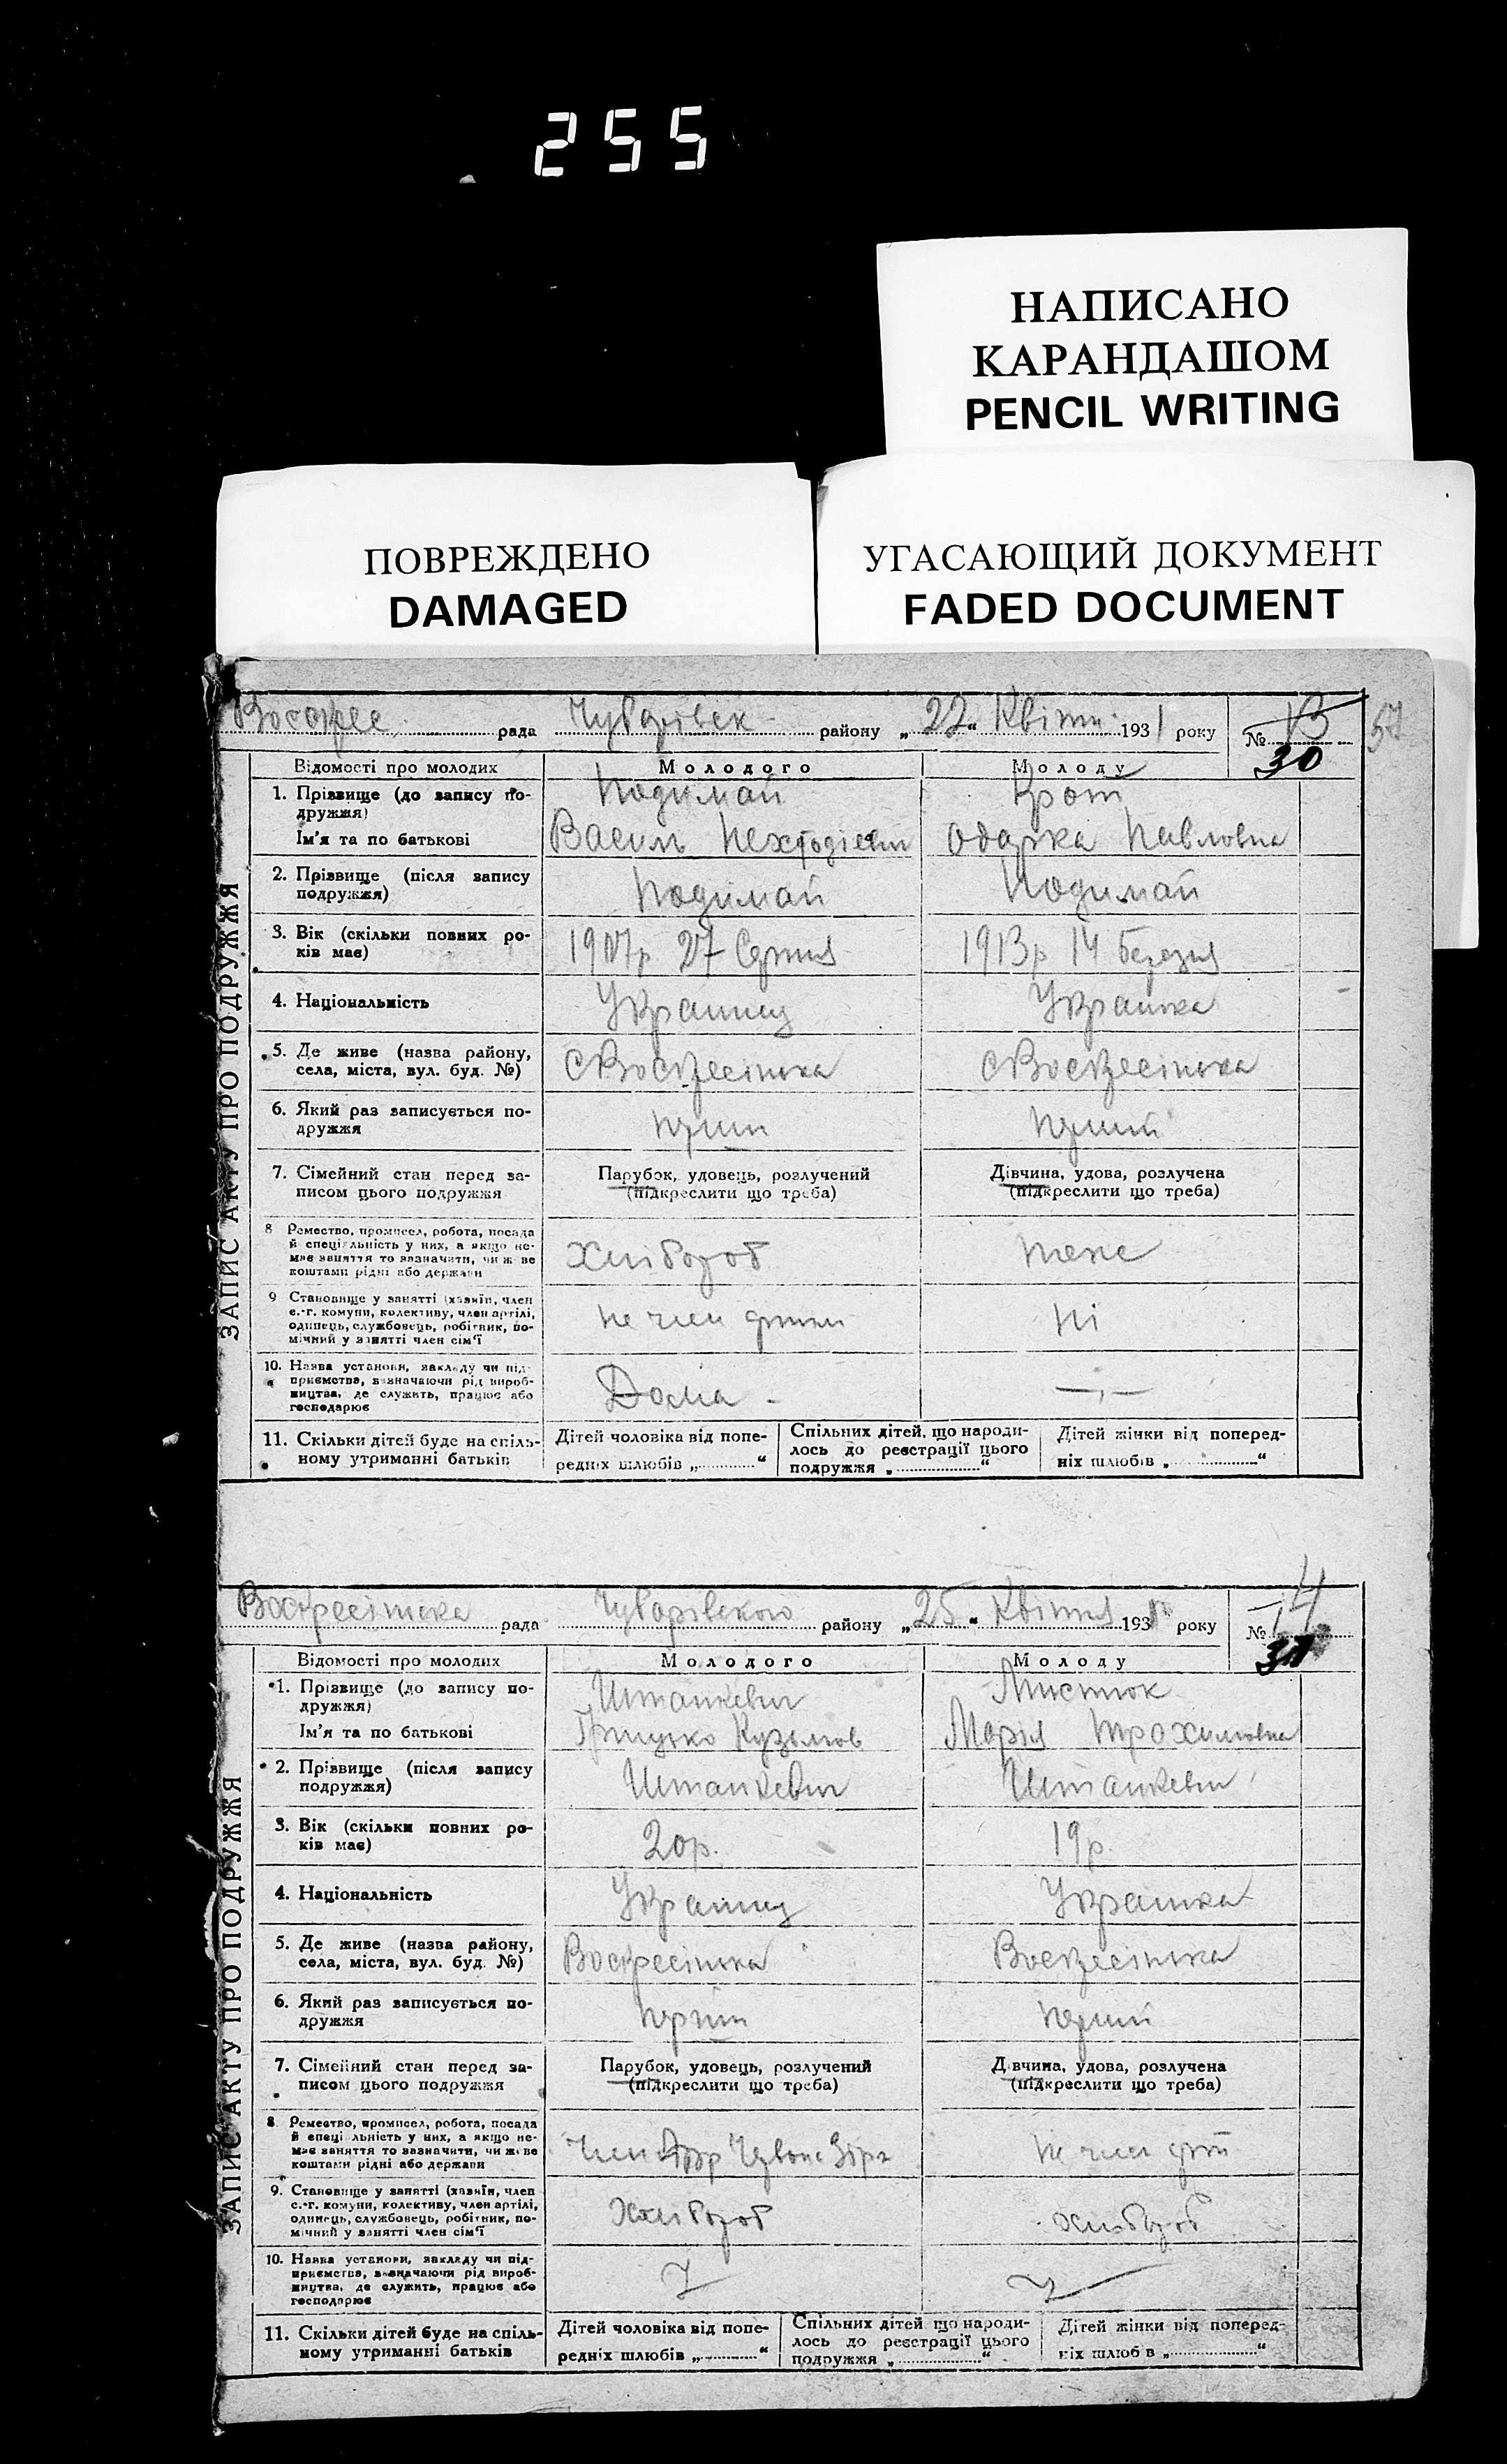 255
НАПИСАНО
КАРАНДАШОМ
PENCIL WRITING
ПОВРЕЖДЕНО
DAMAGED
УГАСАЮЩИЙ ДОКУМЕНТ
FADED DOCUMENT
ЗАПИС АКТУ ПРО ПОДРУЖЖЯ
Воскрес рада Чубарівск району „22“ Квітн 1931 року № 13 57
30
Відомості про молодих Молодого Молоду
1. Прізвище (до запису по- Подимай Крот
дружжя)
Ім'я та по батькові Василь Одарка Павловна
2. Прізвище (після запису Подимай Подимай
подружжя)
3. Вік (скільки повних ро- 1907р 27 Серпня 1913р 14 Березня
ків має)
4. Національність Українец Українка
5. Де живе (назва району, с Воскресінька с Воскресінька
села, міста, вул. буд. №)
6. Який раз записується по- перший
дружжя
7. Сімейний стан перед за- Парубок, удовець, розлучений Дівчина, удова, розлучена
писом цього подружжя (підкреслити що треба) (підкреслити що треба)
8 Ремество, промисел, робота, посада
й спеціяльність у них, а якщо не- Хлібороб теж
має заняття то зазначити, чи живе
коштами рідні або держави
9 Становище у занятті (хазяїн, член
с.-г. комуни, колективу, член артілі, не член Ні
одинець, службовець, робітник, по-
мічний у занятті член сім'ї
10. Назва установи, закладу чи під-
приємства, визначаючи рід вироб- Дома — „ —
ництва, де служить, працює або
господарює
11. Скільки дітей буде на спіль- Дітей чоловіка від попе- Спільних дітей, що народи- Дітей жінки від поперед-
ному утриманні батьків редніх шлюбів „ “ лось до реєстрації цього ніх шлюбів „ “
подружжя „ “
ЗАПИС АКТУ ПРО ПОДРУЖЖЯ
Воскресінська рада Чубарівского району „25“ Квітня 1931 року № 14
31
Відомості про молодих Молодого Молоду
1. Прізвище (до запису по- Штанкевич
дружжя)
Ім'я та по батькові Грицько Кузьмов Марія Трохимовна
2. Прізвище (після запису Штанкевич Штанкевич
подружжя)
3. Вік (скільки повних ро- 20р. 19р.
ків має)
4. Національність Українец Українка
5. Де живе (назва району, Воскресінька Воскресінька
села, міста, вул. буд. №)
6. Який раз записується по- перший
дружжя
7. Сімейний стан перед за- Парубок, удовець, розлучений Дівчина, удова, розлучена
писом цього подружжя (підкреслити що треба) (підкреслити що треба)
8. Ремество, промисел, робота, посада
й спеціяльність у них, а якщо не- Член Зірка не член
має заняття то зазначити, чи живе
коштами рідні або держави
9. Становище у занятті (хазяїн, член
с.-г. комуни, колективу, член артілі, Хлібороб хлібороб
одинець, службовець, робітник, по-
мічний у занятті член сім'ї
10. Назва установи, закладу чи під-
приємства, визначаючи рід вироб-
ництва, де служить, працює або
господарює
11. Скільки дітей буде на спіль- Дітей чоловіка від попе- Спільних дітей що народи- Дітей жінки від поперед-
ному утриманні батьків редніх шлюбів „ “ лось до реєстрації цього ніх шлюбів „ “
подружжя „ “